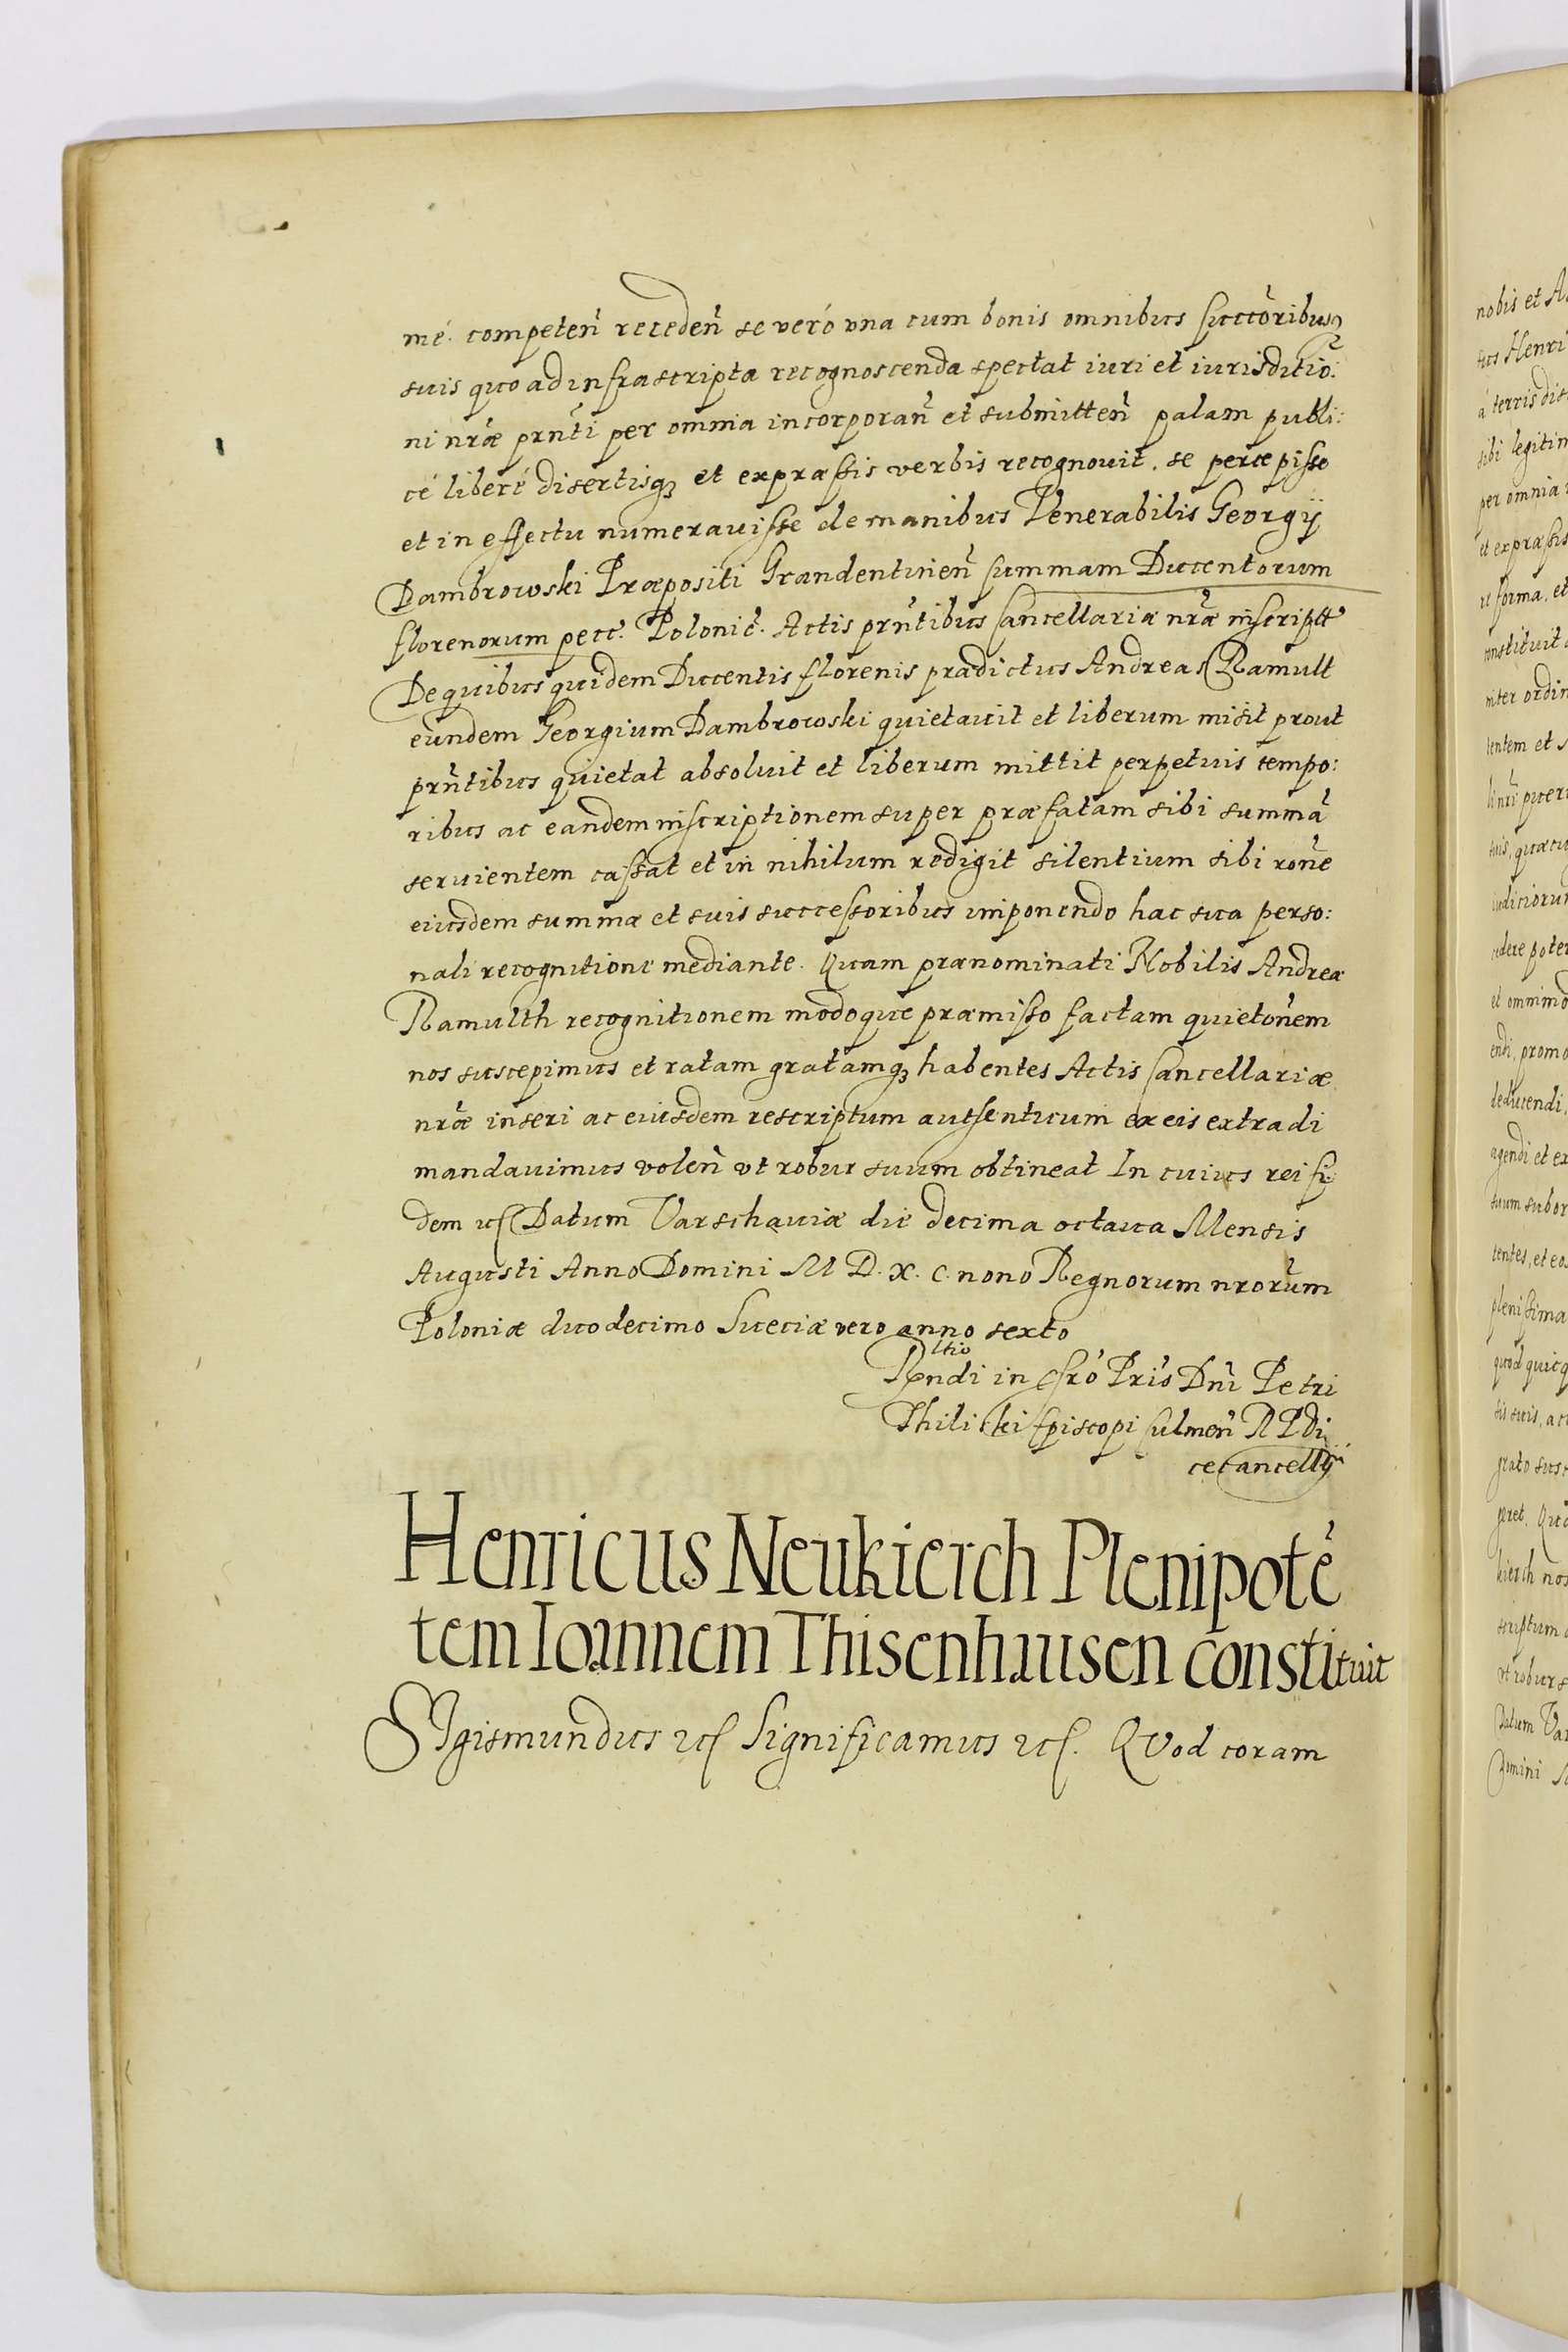 mé. competeñ recedeñ se veró vna cum bonis omnibus succõribusq
suis quo ad infrascripta recognoscenda spectat iuri et iurisditiõ:
ni nr̃æ prñti per omnia incorporañ et submitteñ palam publi:
cé liberé disertisqȝ et expræssis verbis recognouit. se percepisse
et in effectu numerauisse de manibus Venerabilis Georgij
Dambrowski Præpositi Graudentineñ summam Ducentorum
florenorum pecc. Polonic. Actis prñtibus Cancellariæ nr̃æ inscript
De quibus quidem Ducentis florenis prædictus Andreas Ramult
eundem Georgium Dambrowski quietauit et liberum misit prout
prñtibus quietat absoluit et liberum mittit perpetuis tempo:
ribus ac eandem inscriptionem super præfatam sibi summã
seruientem cassat et in nihilum redigit silentium sibi rone
eiusdem summæ et suis successoribus imponendo hac sua perso:
nali recognitione mediante. Quam prænominati Nobilis Andreæ
Ramulth recognitionem modoque præmisso factam quietoñem
nos suscepimus et ratam gratamqȝ habentes Actis Cancellariæ
nr̃æ inseri ac eiusdem rescriptum autsenticum ex eis extradi
mandauimus voleñ vt robur suum obtineat In cuius rei fi
dem etc Datum Varschauiæ die decima octaua Mensis
Augusti Anno Domini M D. X. C. nono Regnorum nrorum
Poloniæ duodecimo Sueciæ vero anno sexto
Rltio
Rndi in Chrõ Pris Dnĩ Petri
Thilicki Episcopi Culmeñ R P Di
cecancellrij
Henricus Neukierch Plenipotẽ
tem Ioannem Thisenhausen constituit
SIgismundus etc Significamus etc. QVod coram
nobis et A
sus Henri
á terris dit
sibi legitim
per omnia
et expræssis
et forma, et
constituit
niter ordin
tentem et
suis, quæcu
iudiciorum
cedere poter
et omnimo
endi, promo
deducendi,
agendi et ex
suum subor
tentes, et eos
plenissima
quod quicq
sis suis, ac
grato susc
geret. Quã
kierch nos
scriptum
vt robur s
Datum Var
Domini